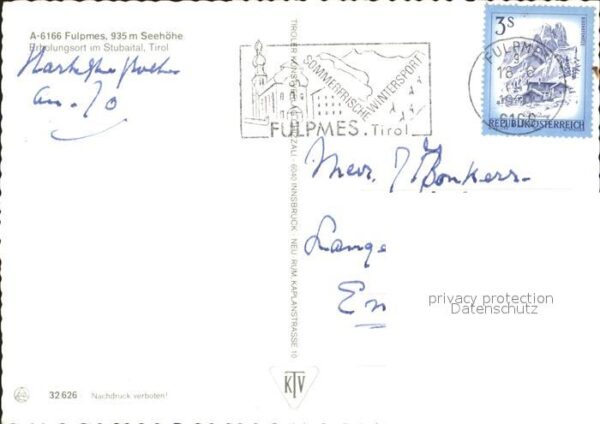 A-6166 Fulpmes, 935 m Seehöhe
Erholungsort im Stubaital, Tirol
SOMMERFRISCHE
WINTERSPORT
FULPMES. Tirol
FULPMES
6166
3S
REPUBLIK ÖSTERREICH
TIROLER KUNSTVERLAG CHIZZALI 6040 INNSBRUCK - NEU RUM, KAPLANSTRASSE 10
Mevr. Bonkers
Lange
En
privacy protection
www.ansichtskartenversand.com
KTV
32 626 Nachdruck verboten!